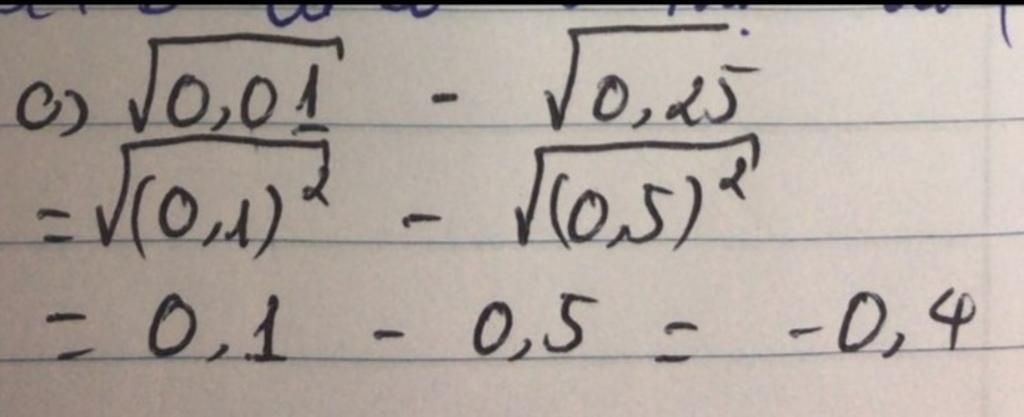 c) √0,01 - √0,25
= √(0,1)² - √(0,5)²
= 0,1 - 0,5 = -0,4